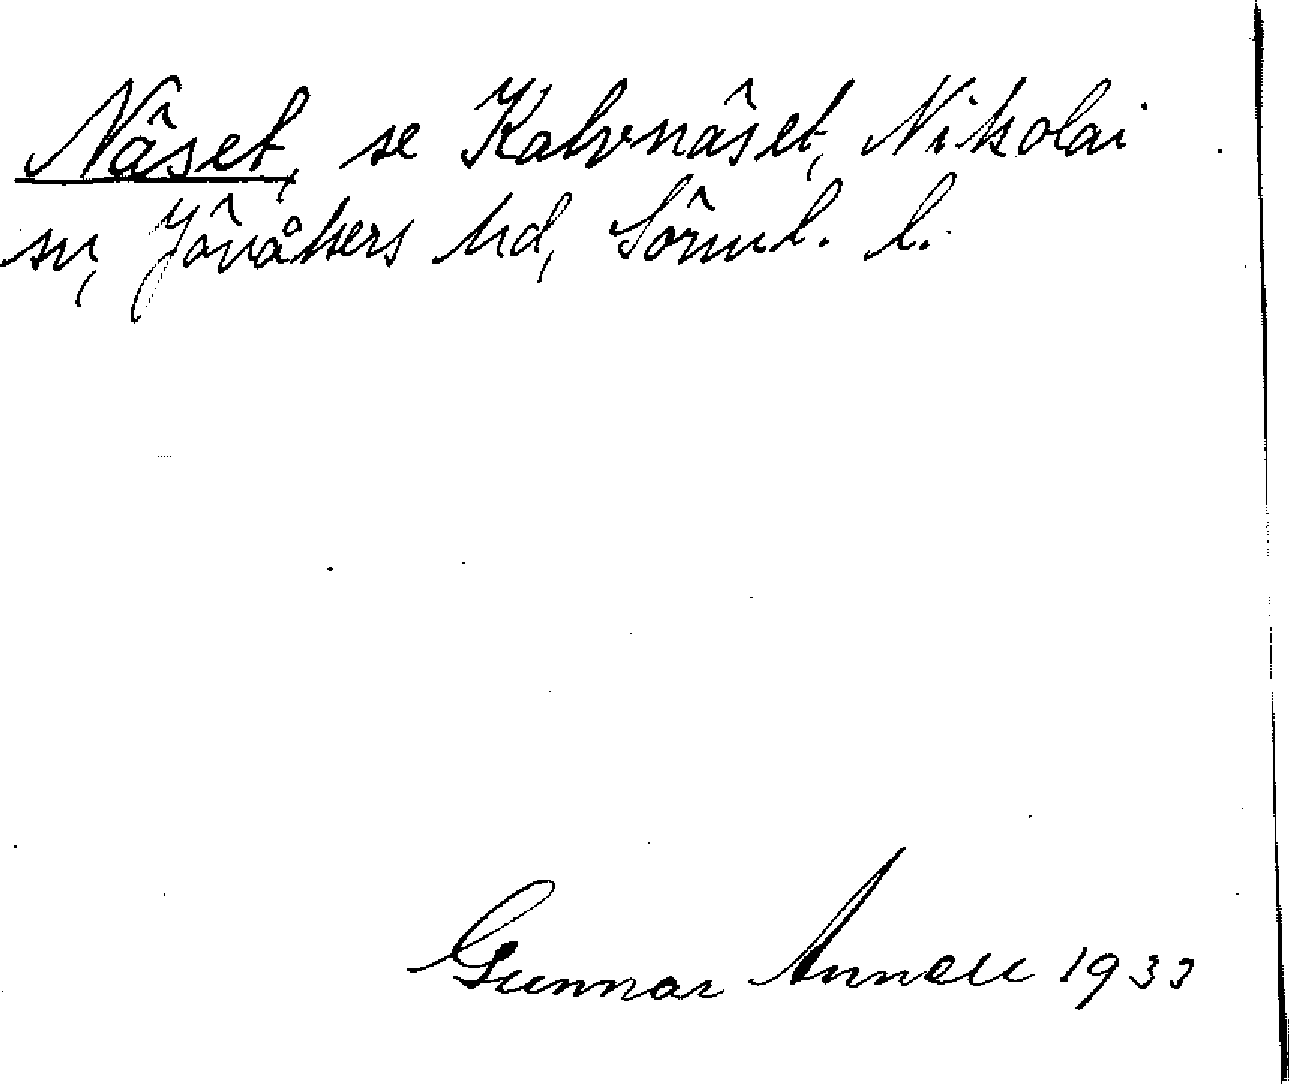 Näset, se Kalvnäset, Nikolai
sn, Jönåkers hd, Sörml. l.
Gunnar Annell 1933